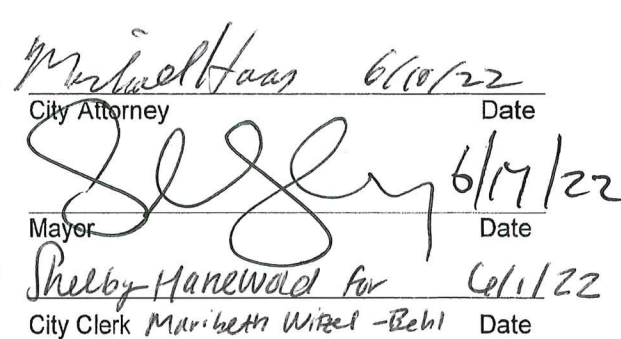 Michael Haas 6/10/22
City Attorney Date
6/17/22
Mayor Date
Shelby Hanewold for 6/1/22
City Clerk Maribeth Witzel-Behl Date